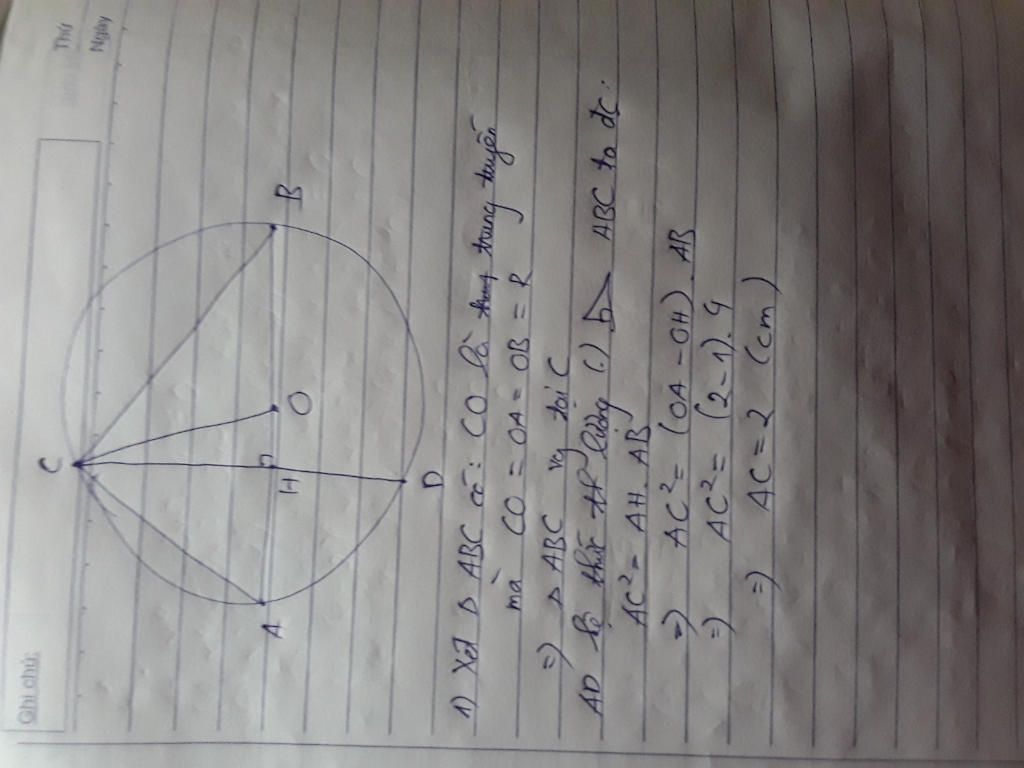 Ghi chú:
Thứ
Ngày
C
A
H
O
B
D
1) Xét Δ ABC có: CO là trung tuyến
mà CO = OA = OB = R
=) Δ ABC vg tại C
AD hệ thức lượng () △ ABC ta đc:
AC² = AH. AB
=) AC² = (OA - OH). AB
=) AC² = (2-1).4
=) AC = 2 (cm)